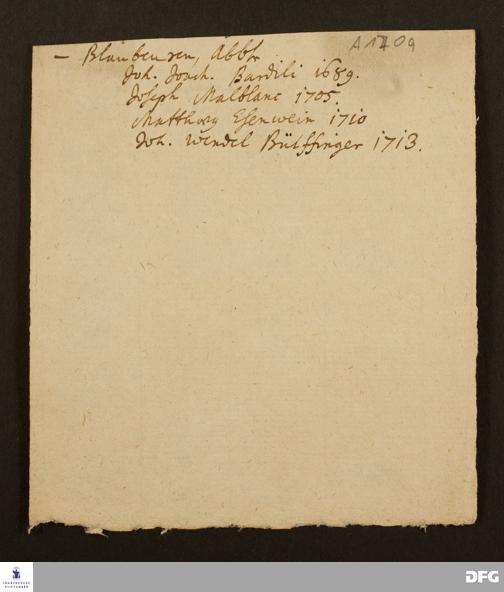 – Blaubeuren, Äbbt
A 1709
Joh. Joach. Bardili 1689.
Joseph Malblanc 1705.
Matthaeus Esenwein 1710
Joh. Wendel Bülffinger 1713.
FRANCKESCHE
STIFTUNGEN
DFG